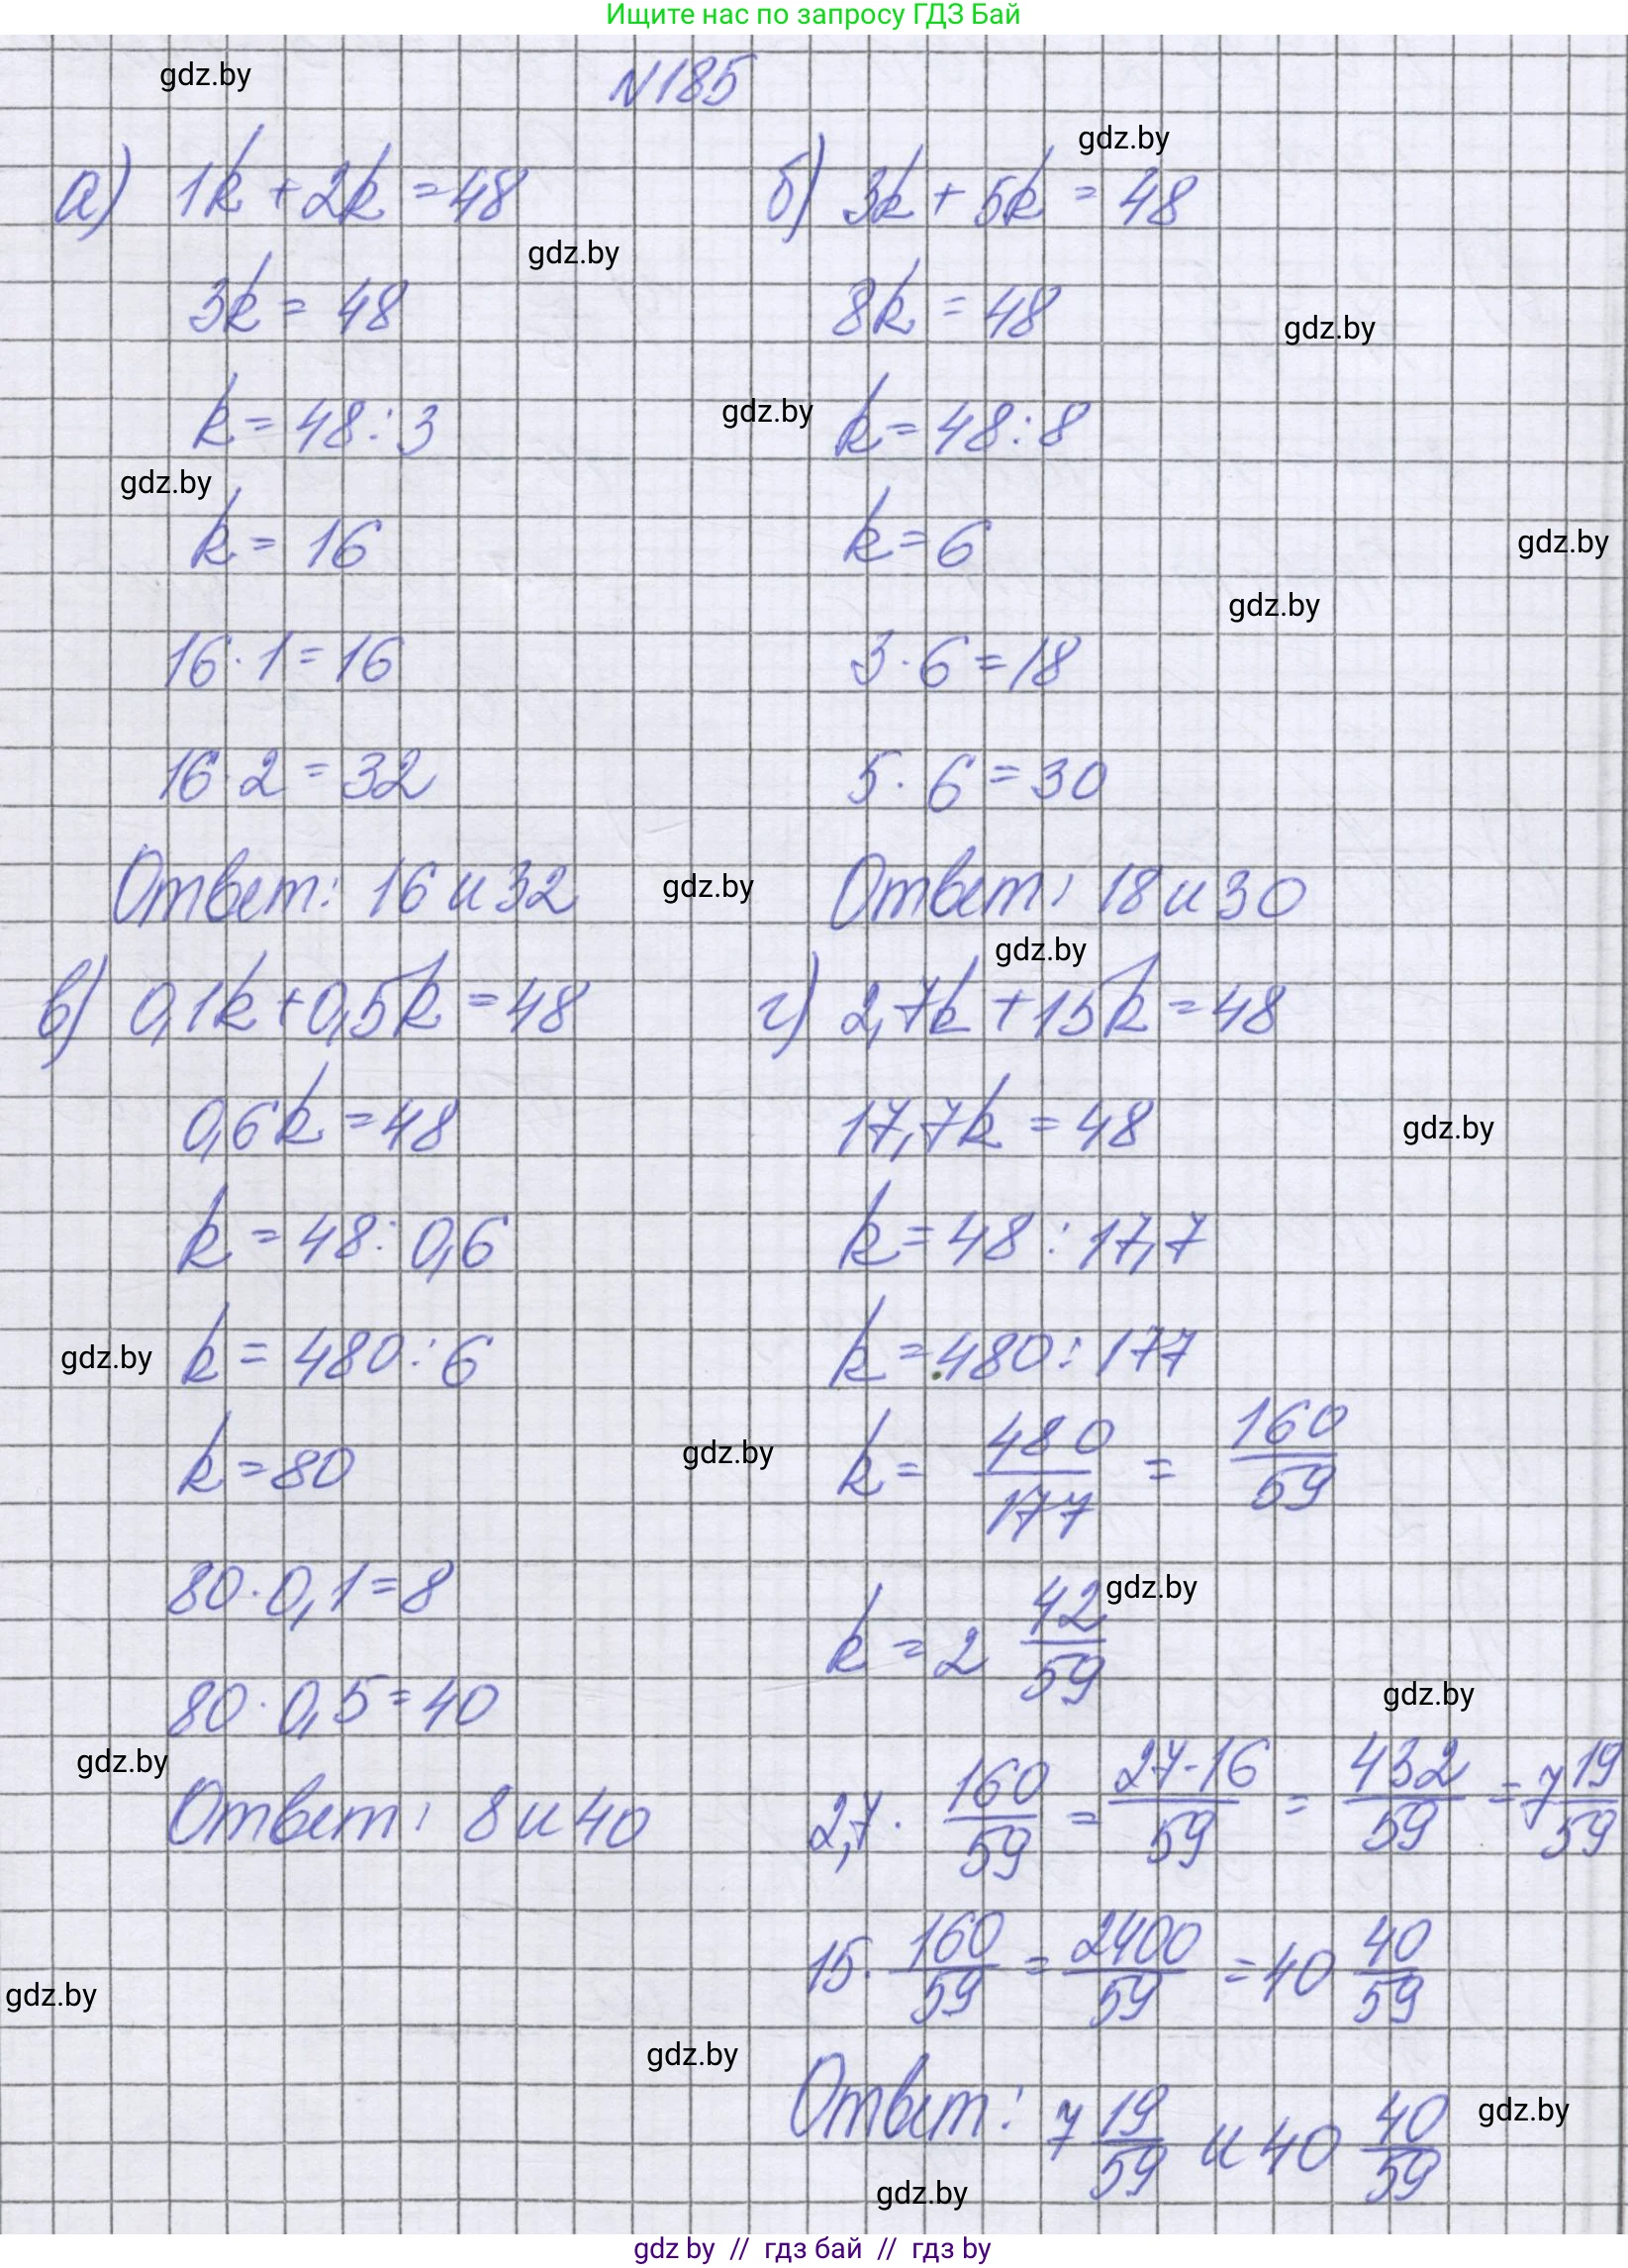 Ищите нас по запросу ГДЗ Бай
gdz.by
N185
gdz.by
а) 1k + 2k = 48
3k = 48
k = 48 : 3
k = 16
16 · 1 = 16
16 · 2 = 32
Ответ: 16 и 32
gdz.by
gdz.by
б) 3k + 5k = 48
8k = 48
k = 48 : 8
k = 6
3 · 6 = 18
5 · 6 = 30
Ответ: 18 и 30
gdz.by
gdz.by
gdz.by
gdz.by
gdz.by
gdz.by
в) 0,1k + 0,5k = 48
0,6k = 48
k = 48 : 0,6
k = 480 : 6
k = 80
80 · 0,1 = 8
80 · 0,5 = 40
Ответ: 8 и 40
gdz.by
gdz.by
gdz.by
gdz.by
г) 2,7k + 15k = 48
17,7k = 48
k = 48 : 17,7
k = 480 : 177
k = 480/177 = 160/59
k = 2 42/59
2,7 · 160/59 = 27·16/59 = 432/59 = 7 19/59
15 · 160/59 = 2400/59 = 40 40/59
Ответ: 7 19/59 и 40 40/59
gdz.by
gdz.by
gdz.by
gdz.by
gdz.by
gdz.by
gdz.by
gdz by // гдз бай // гдз by